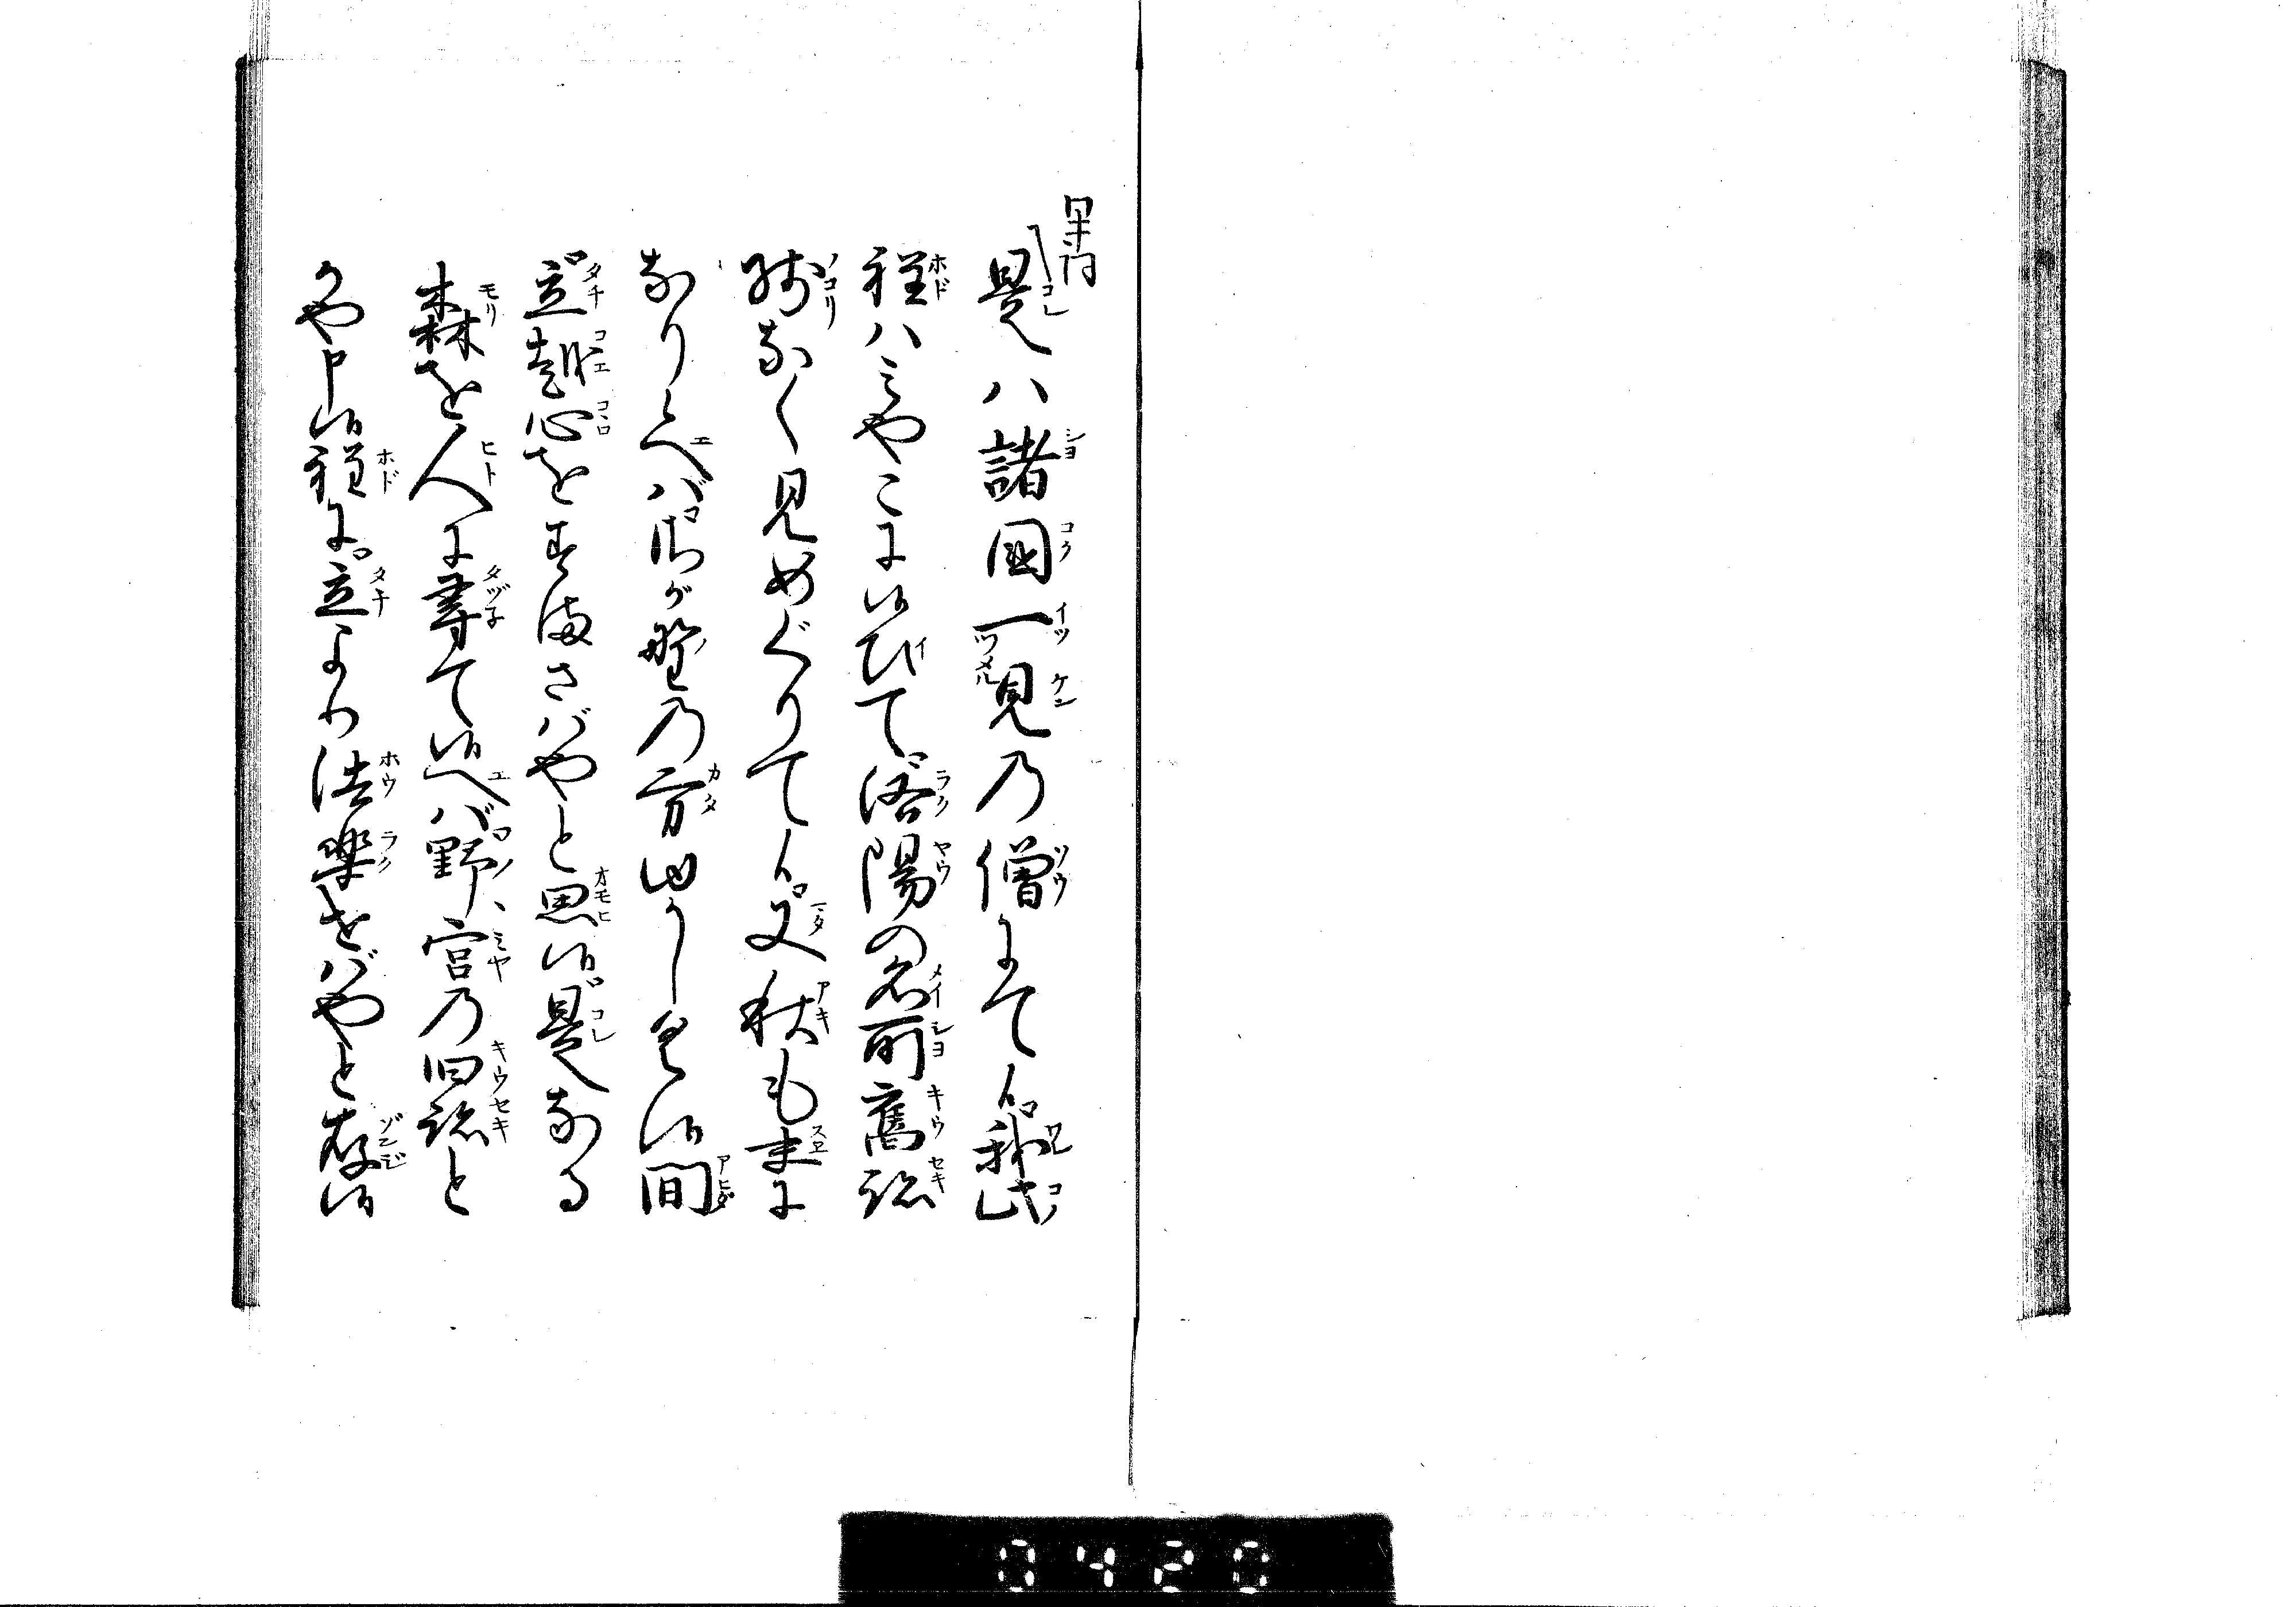 是ハ諸國一見乃僧にて候我此
程ハミやこに候ひて洛陽の名所舊跡
残なく見めぐりて候又秋も末に
なり候へバ嵯峨野乃方ゆかしく候間
立越心をすまさバやと思候是なる
森を人に尋て候へバ野宮乃旧跡と
かや申候程に立より法楽せバやと存候
0420